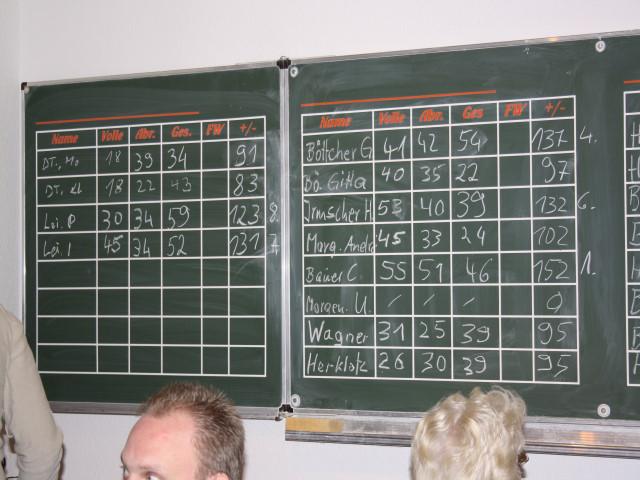 Name Volle Abr. Ges. FW +/-
DT., Mo 18 39 34 91
DT., Kl 18 22 43 83
Loi. P 30 34 59 123 8.
Lei. I 45 34 52 131 7.
Name Volle Abr. Ges FW +/-
Böttcher G 41 42 54 137 4.
Bö. Gitta 40 35 22 97
Irmscher H 53 40 39 132 6.
Morg. Andr 45 33 24 102
Bauer C. 55 51 46 152 1.
Morgen. U. / / / 0
Wagner 31 25 39 95
Herklotz 26 30 39 95